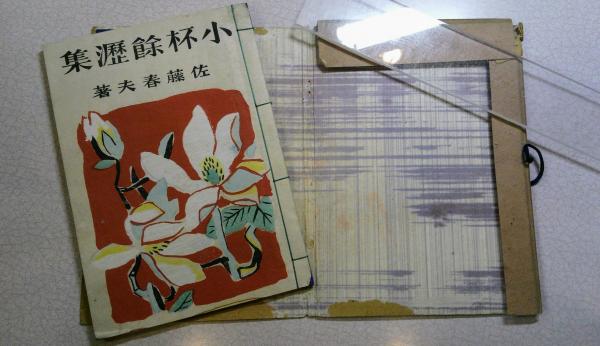 小杯餘瀝集
佐藤春夫著